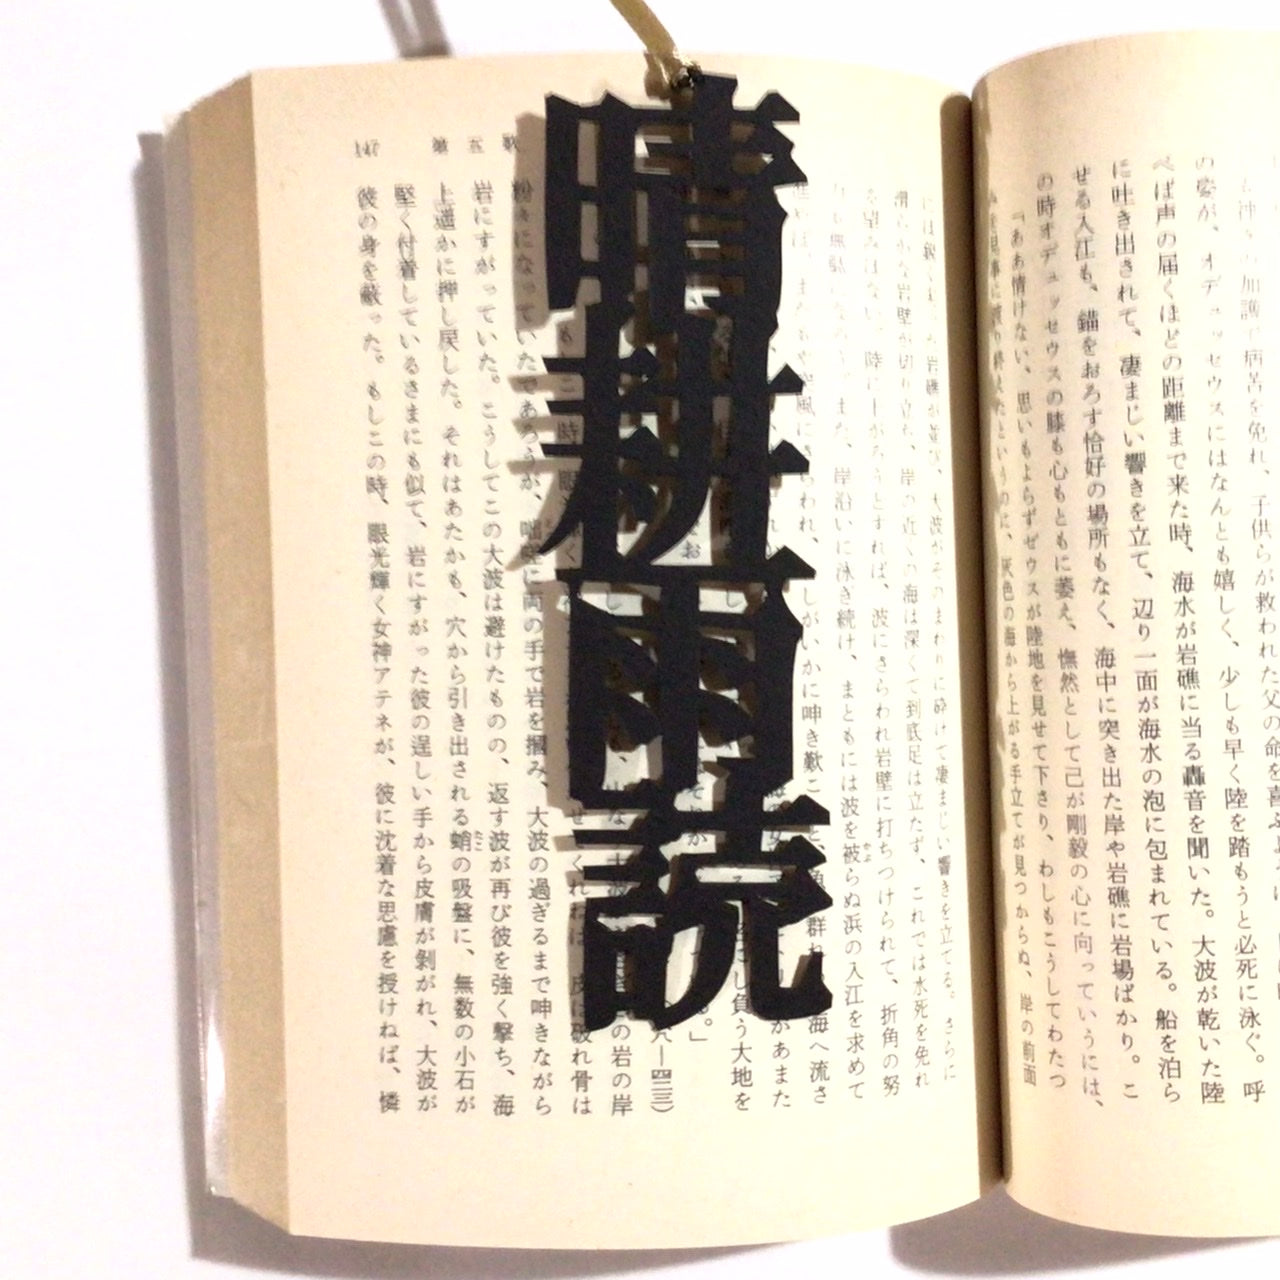 晴耕雨読
神々の加護で病苦を免れ、子供らが救われた父の命を喜ぶよ
の姿が、オデュッセウスにはなんとも嬉しく、少しも早く陸を踏もうと必死に泳ぐ。呼
べば声の届くほどの距離まで来た時、海水が岩礁に当る轟音を聞いた。大波が乾いた陸
に吐き出されて、凄まじい響きを立て、辺り一面が海水の泡に包まれている。船を泊ら
せる入江も、錨をおろす恰好の場所もなく、海中に突き出た岸や岩礁に岩場ばかり。こ
の時オデュッセウスの膝も心もともに萎え、憮然として己が剛毅の心に向っていうには、
「ああ情けない、思いもよらずゼウスが陸地を見せて下さり、わしもこうしてわたつ
みを見事に渡り終えたというのに、灰色の海から上がる手立てが見つからぬ、岸の前面
には鋭く尖った岩礁が並び、大波がそのまわりに砕けて凄まじい響きを立てる。さらに
滑らかな岩壁が切り立ち、岸の近くの海は深くて到底足は立たず、これでは水死を免れ
る望みはない。陸に上がろうとすれば、波にさらわれ岩壁に打ちつけられて、折角の努
力も無駄になろう。また、岸沿いに泳ぎ続け、まともには波を被らぬ浜の入江を求めて
またもや突風にさらわれ、しがいかに呻き歎こ と、魚群れ 海へ流さ
があまた
し負う大地を
。」
八—四二三)
の岩の岸
せてくれねば、皮は破れ骨は
粉々になっていたであろうが、咄嗟に両の手で岩を摑み、大波の過ぎるまで呻きながら
岩にすがっていた。こうしてこの大波は避けたものの、返す波が再び彼を強く撃ち、海
上遥かに押し戻した。それはあたかも、穴から引き出される蛸の吸盤に、無数の小石が
堅く付着しているさまにも似て、岩にすがった彼の逞しい手から皮膚が剝がれ、大波が
彼の身を蔽った。もしこの時、眼光輝く女神アテネが、彼に沈着な思慮を授けねば、憐
147 第五歌